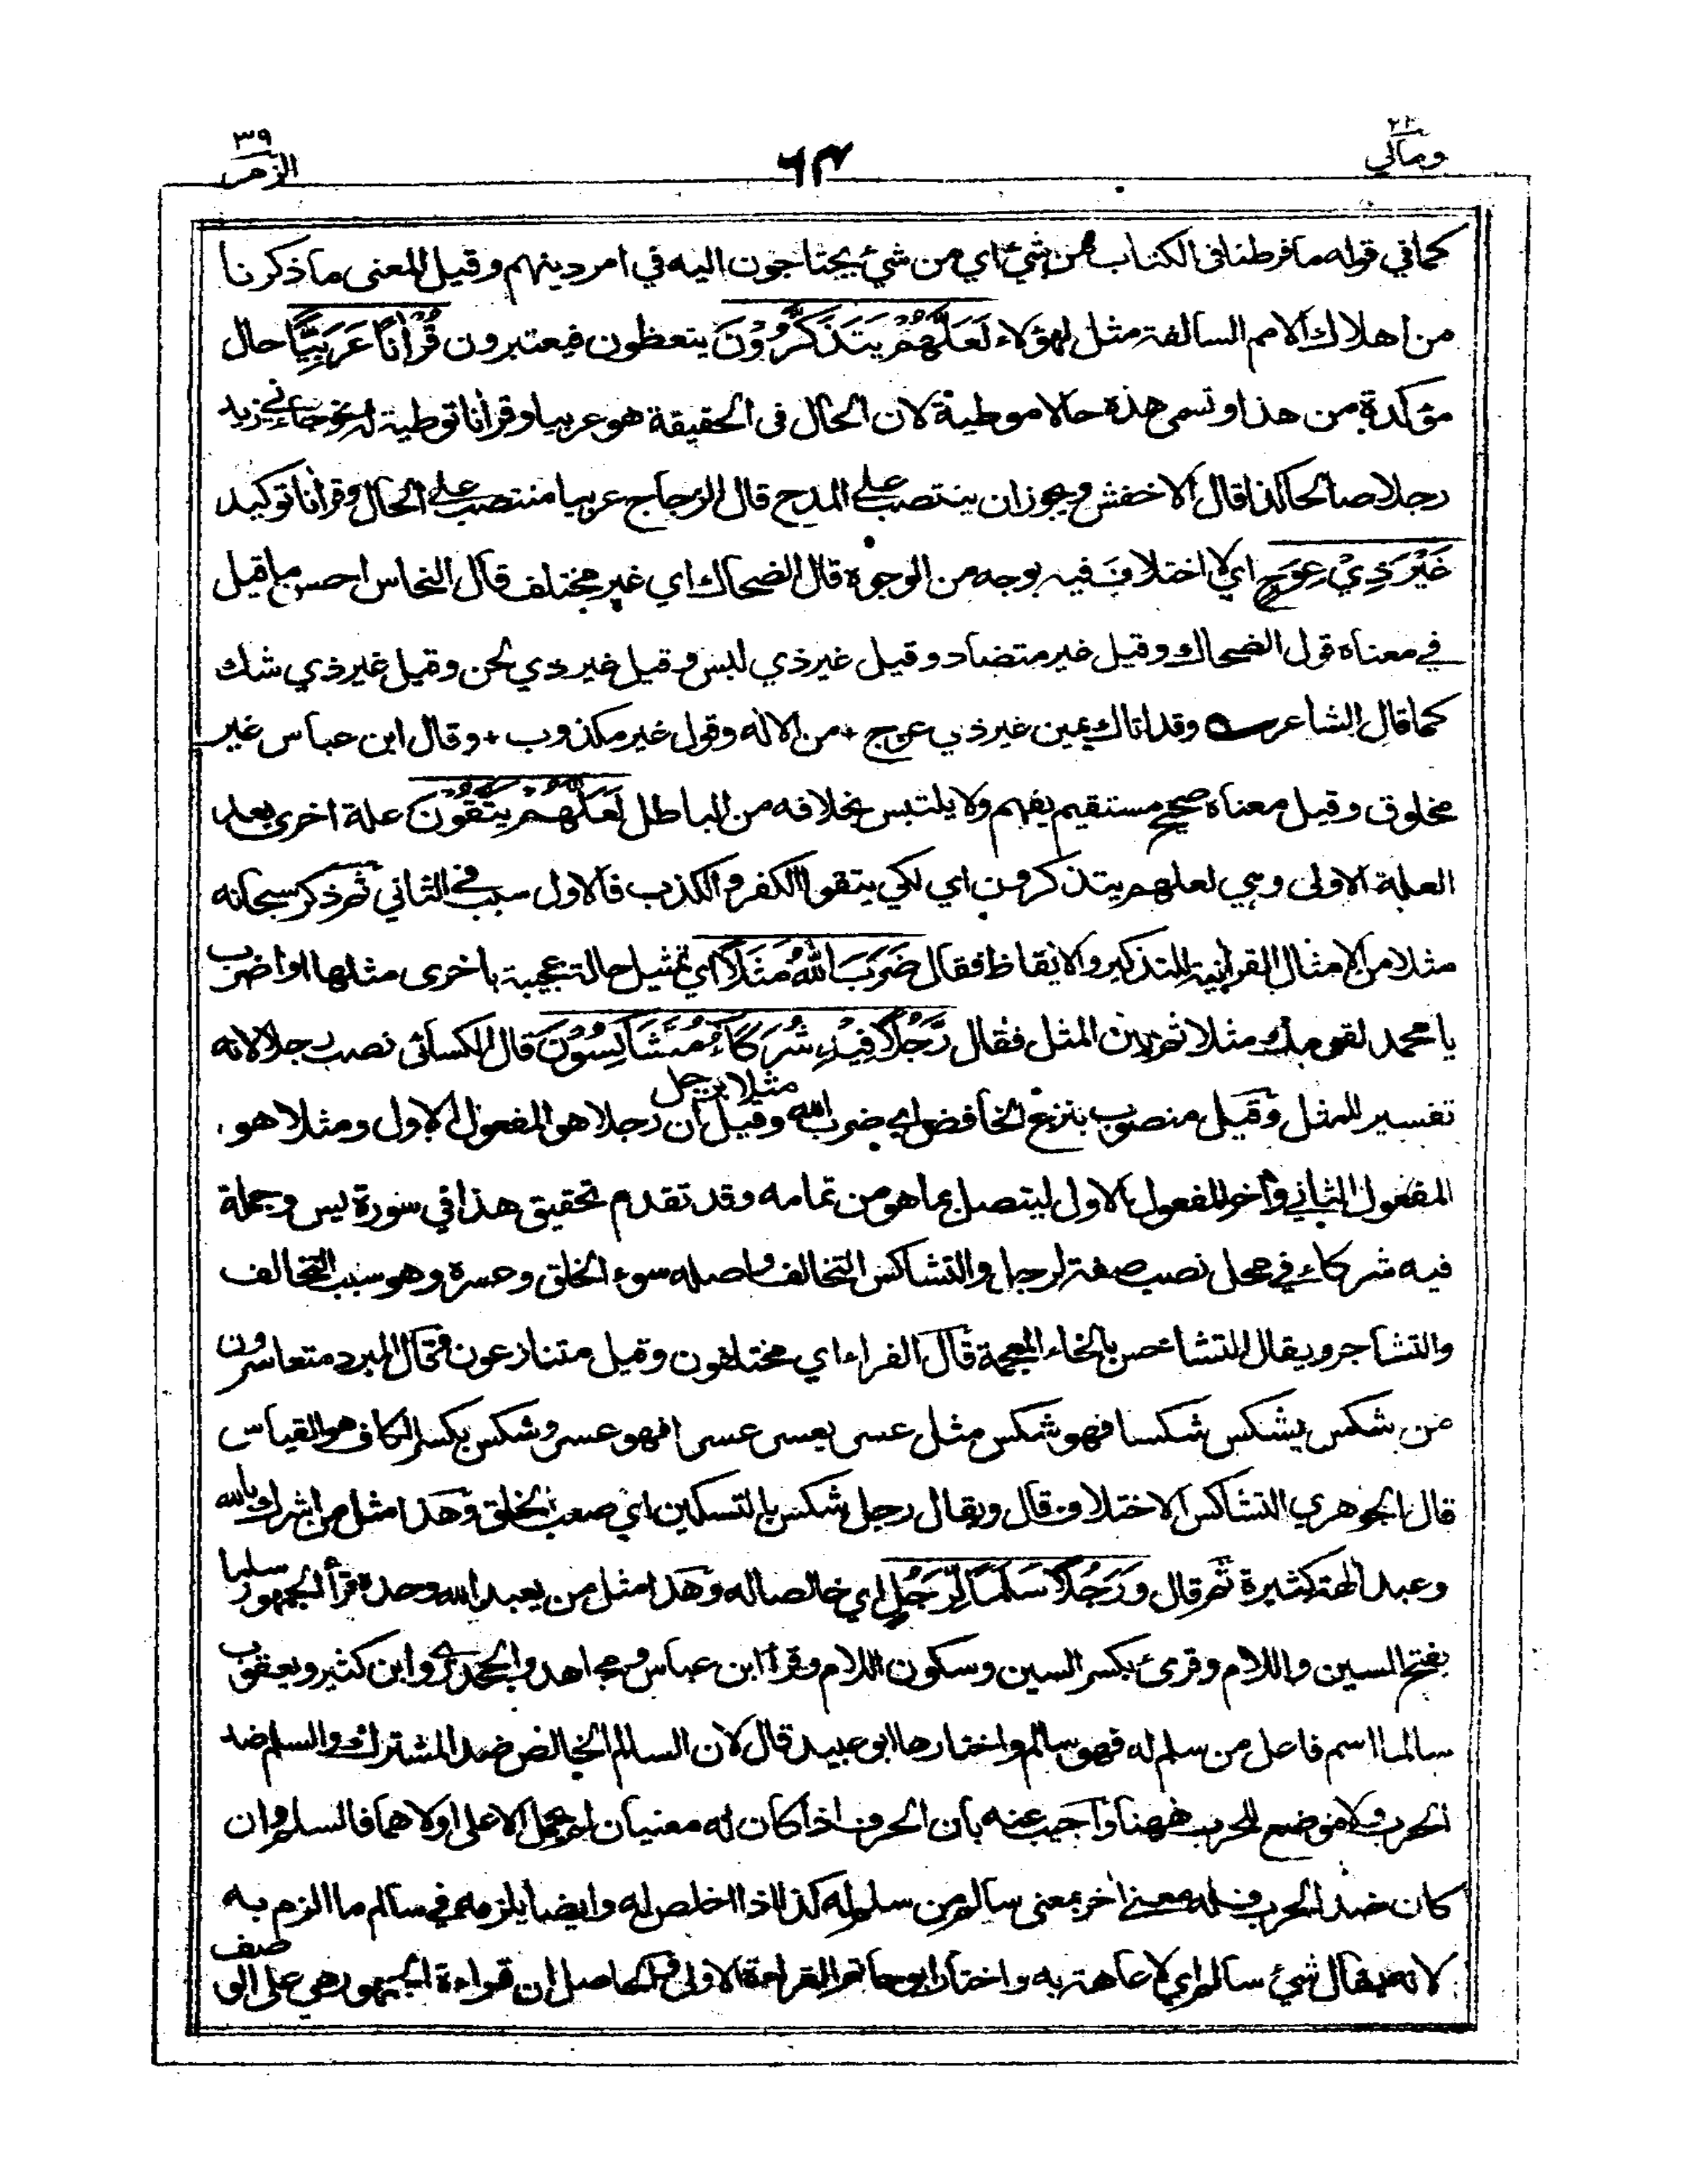 ٢٣
ومالي
٦٣
٣٩
الزمر
كما في قوله ما فرطنا في الكتاب من شيء اي من شيء يحتاجون اليه في امر دينهم وقيل المعنى ما ذكرنا
من اهلاك الامم السالفة مثل لهؤلاء لَعَلَّهُمْ يَتَذَكَّرُوْنَ يتعظون فيعتبرون قُرْاٰنًا عَرَبِيًّا حال
مؤكدة من هذا وتسمى هذه حالا موطية لان الحال في الحقيقة هو عربيا وقرانا توطية له نحو جاءني زيد
رجلا صالحا كذا قال الاخفش ويجوز ان ينتصب على المدح قال الزجاج عربيا منتصب على الحال وقرانا توكيد
غَيْرَ ذِيْ عِوَجٍ اي لا اختلاف فيه بوجه من الوجوه قال الضحاك اي غير مختلف قال النحاس احسن ما قيل
في معناه قول الضحاك وقيل غير متضاد وقيل غير ذي لبس وقيل غير ذي لحن وقيل غير ذي شك
كما قال الشاعر وقد اتاك يمين غير ذي عوج + من الاله وقول غير مكذوب + وقال ابن عباس غير
مخلوق وقيل معناه صحيح مستقيم يفهم ولا يلتبس بخلافه من الباطل لَعَلَّهُمْ يَتَّقُوْنَ علة اخرى بعد
العلة الاولى وهي لعلهم يتذكرون اي لكي يتقوا الكفر والكذب فالاول سبب في الثاني ثم ذكر سبحانه
مثلا من الامثال القرآنية للتذكير والايقاظ فقال ضَرَبَ اللّٰهُ مَثَلًا اي تمثيل حالة عجيبة باخرى مثلها او اضرب
يا محمد لقومك مثلا ثم بين المثل فقال رَّجُلًا فِيْهِ شُرَكَآءُ مُتَشَاكِسُوْنَ قال الكسائي نصب رجلا لانه
تفسير للمثل وقيل منصوب بنزع الخافض اي ضرب الله مثلا برجل وقيل ان رجلا هو المفعول الاول ومثلا هو
المفعول الثاني وأخر المفعول الاول ليتصل بما هو من تمامه وقد تقدم تحقيق هذا في سورة يس وجملة
فيه شركاء في محل نصب صفة لرجل والتشاكس التخالف واصله سوء الخلق وعسره وهو سبب التخالف
والتشاجر ويقال المتشاخس بالخاء المعجمة قال الفراء اي مختلفون وقيل متنازعون وقال المبرد متعاسرون
من شكس يشكس شكسا فهو شكس مثل عسر يعسر عسرا فهو عسر وشكس بكسر الكاف هو القياس
قال الجوهري التشاكس الاختلاف قال ويقال رجل شكس بالتسكين اي صعب الخلق وهذا مثل من اشرك بالله
وعبد الهة كثيرة ثم قال وَرَجُلًا سَلَمًا لِّرَجُلٍ اي خالصا له وهذا مثل من يعبد الله وحده قرأ الجمهور سلما
بفتح السين واللام وقرئ بكسر السين وسكون اللام وقرأ ابن عباس ومجاهد والجحدري وابن كثير ويعقوب
سالما اسم فاعل من سلم له فهو سالم واختارها ابو عبيد قال لان السالم الخالص ضد المشترك والسلم ضد
الحرب ولا موضع للحرب ههنا وأجيب عنه بان الحرف اذا كان له معنيان لم يحمل الا على اولاهما فالسلم وان
كان ضد الحرب فله معنى اخر بمعنى سالم من سلم له كذا اذا خلص له وايضا يلزمه في سالم ما الزم به
لانه يقال شيء سالم اي لا عاهة به واختار ابو حاتم القراءة الاولى والحاصل ان قراءة الجمهور هي على الوصف